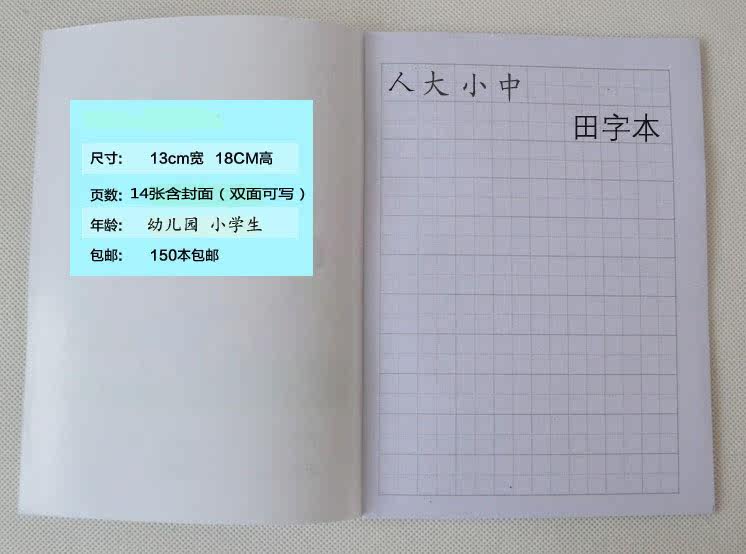 尺寸: 13cm宽 18CM高
页数: 14张含封面（双面可写）
年龄: 幼儿园 小学生
包邮: 150本包邮
人大小中
田字本